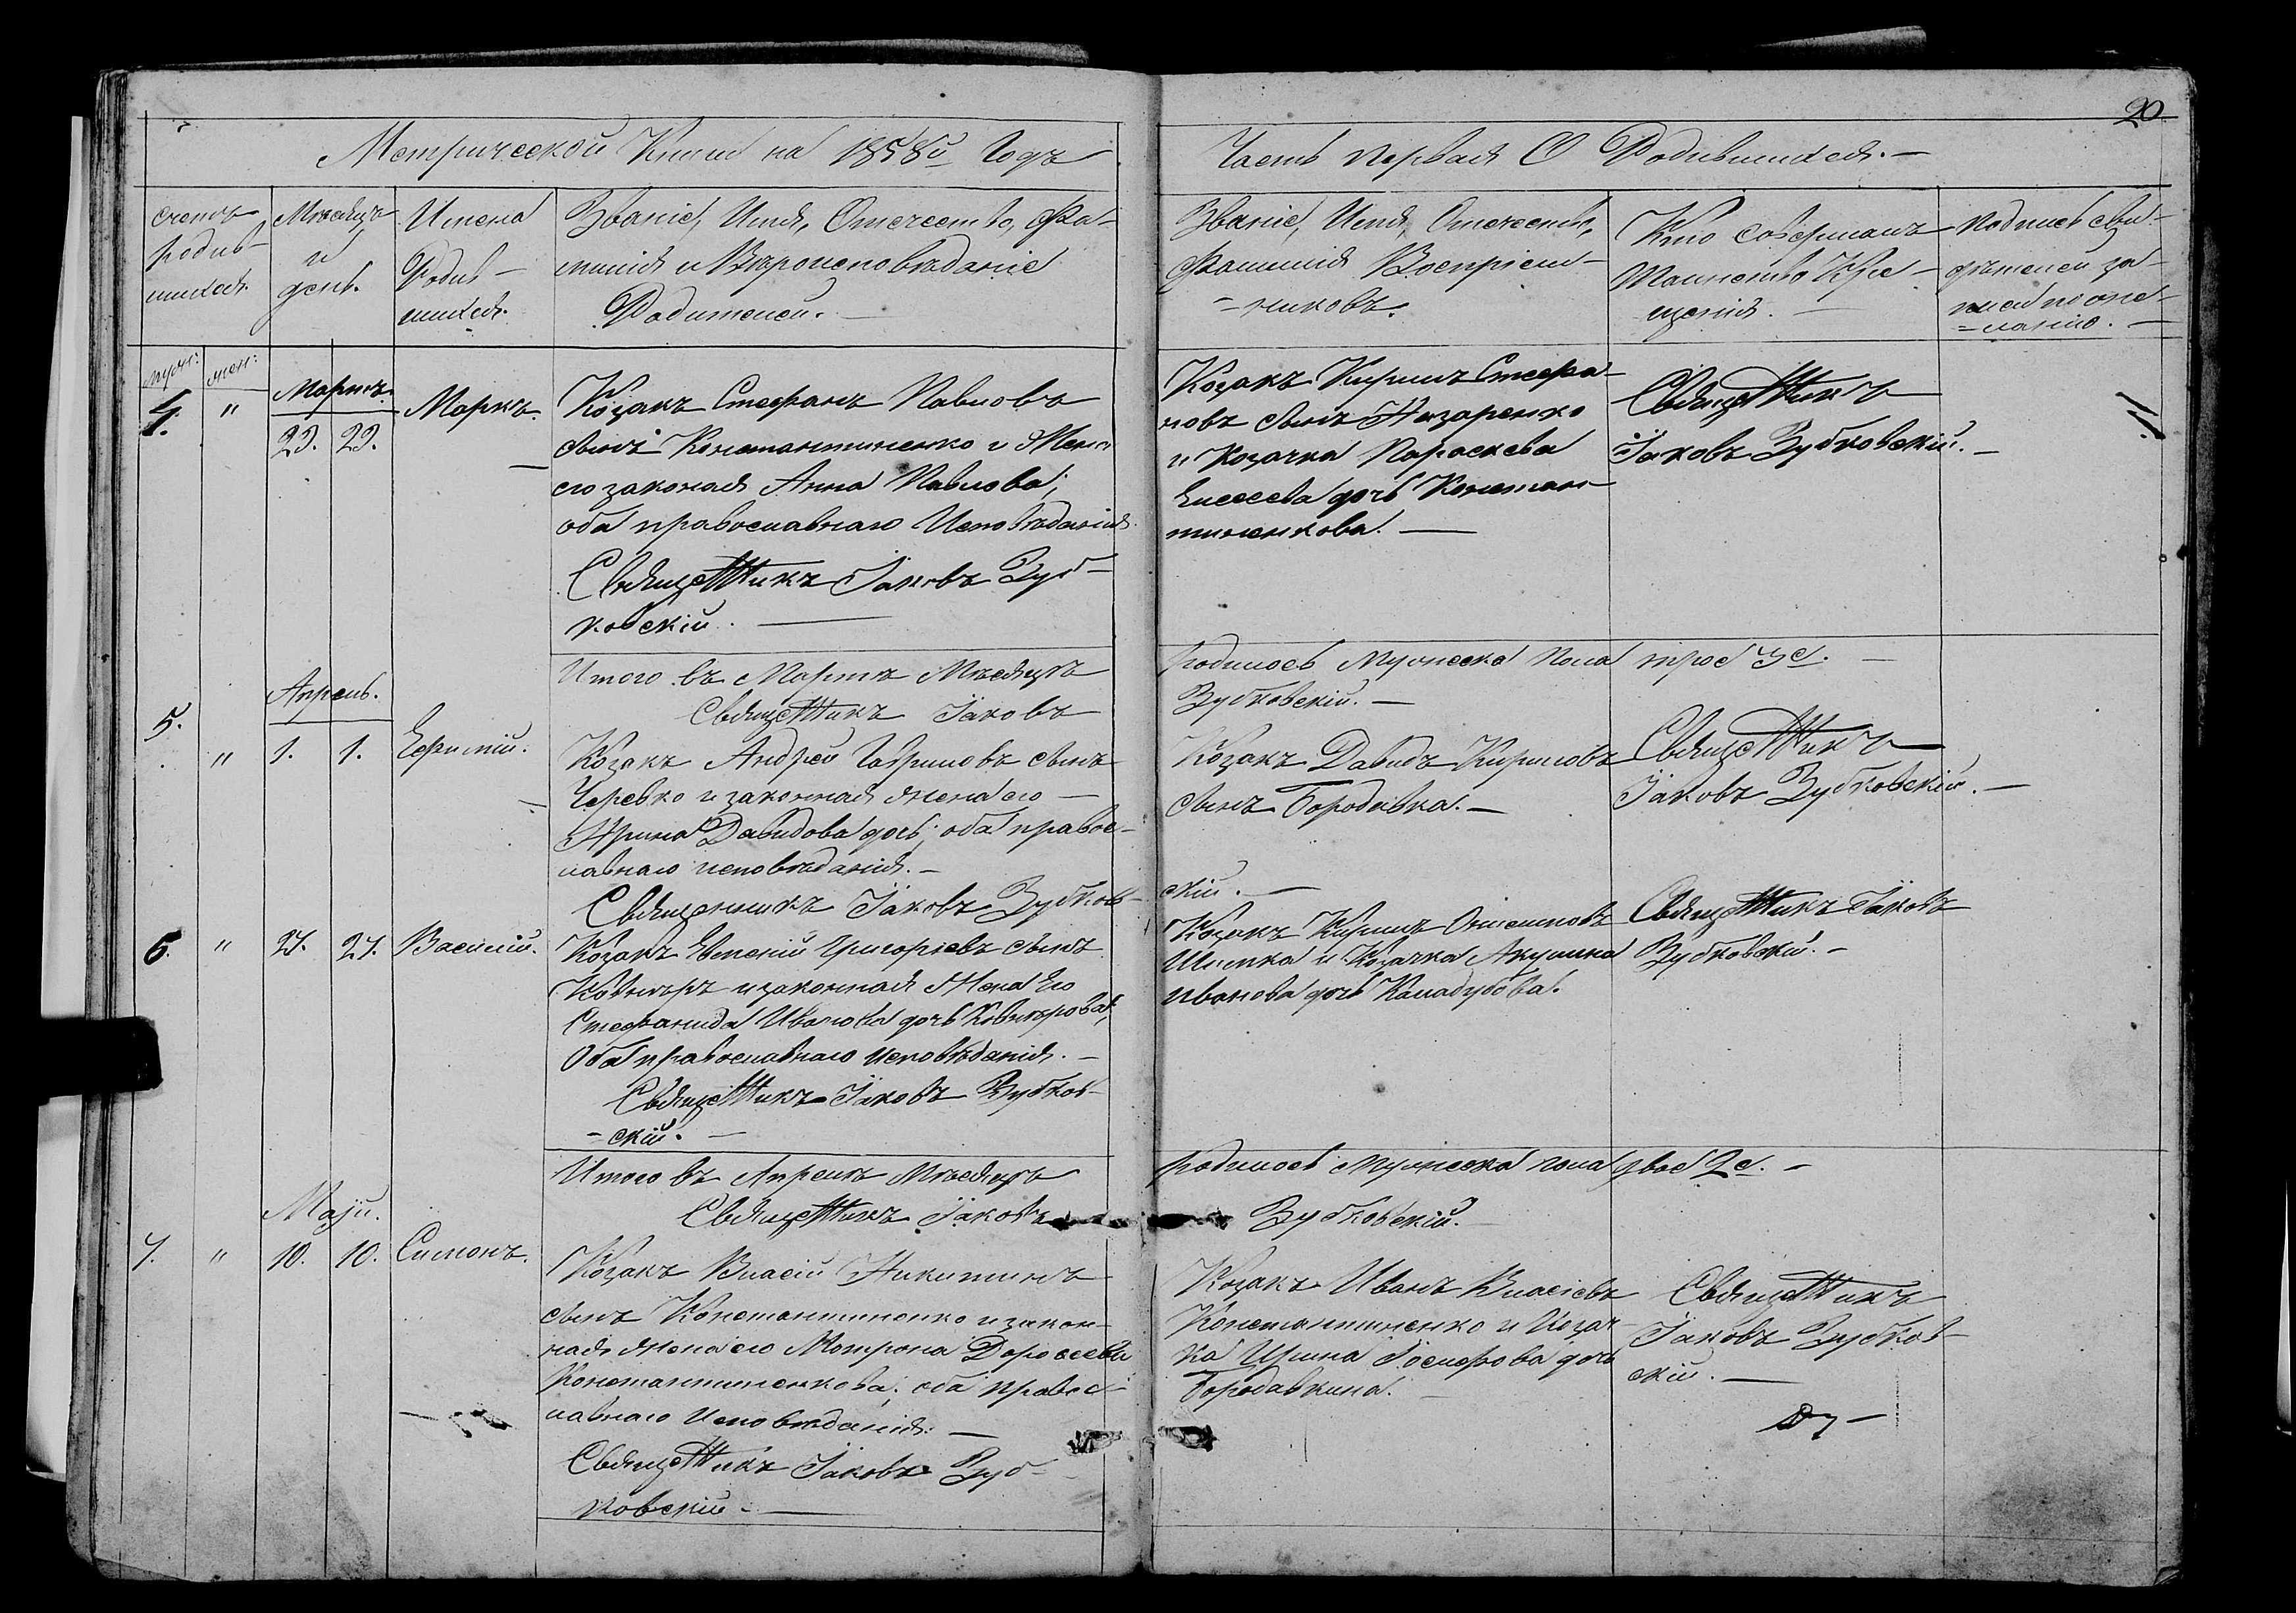 20
Метрической Книги на 1858й Годъ
Часть первая О Родившихся.
счетъ родив-шихся.
Мѣсяцъ и день.
Имена Родив-шихся.
Званіе, Имя, Отечество, Фа-
милія и Вѣроисповѣданіе
Родителей.
Званіе, Имя, Отечество,
Фамилія Воспріем-
-никовъ.
Кто совершалъ
Таинство Кре-
щенія.
муж: жен:
Мартъ.
4. " 23. 23. Маркъ.
Козакъ Стефанъ Павловъ
сынъ Константиненко и Жена
его законая Анна Павлова;
оба православнаго Исповѣданія.
Священникъ Іаковъ Зуб-
ковскій.
Козакъ Кирилъ Стефа-
новъ сынъ Назаренко
и Козачка Параскева
Елисеева дочь Констан-
тиненкова.
Священникъ
Іаковъ Зубковскій.
Итого въ Мартѣ Мѣсяцѣ
родилось Мужеска Пола трое 3е.
Священникъ Іаковъ
Зубковскій.
Апрель.
5. " 1. 1. Ефимій.
Козакъ Андрей Гавриловъ сынъ
Черевко и законная жена его
Ирина Давидова дочь; оба правос-
лавнаго исповѣданія.
Священникъ Іаковъ Зубков-
скій.
Козакъ Давидъ Кириловъ
сынъ Бородавка.
Священникъ
Іаковъ Зубковскій.
6. " 27. 27. Василій.
Козакъ Евгеній Григорьевъ сынъ
и законная Жена Его
Стефанида Иванова дочь
Оба православнаго исповѣданія.
Священникъ Іаковъ Зубков-
-скій.
Козакъ Кирилъ
и Козачка Акулина
Иванова дочь
Священникъ Іаковъ
Зубковскій.
Итого въ Апрелѣ Мѣсяцѣ
родилось мужеска пола двое 2е.
Священникъ Іаковъ
Зубковскій.
Маій.
7. " 10. 10. Симонъ.
Козакъ Власій Никитинъ
сынъ Константиненко и закон-
ная жена его Мотрона Дорофеева
Константиненкова; оба правос-
лавнаго Исповѣданія.
Священникъ Іаковъ Зуб-
ковскій.
Козакъ Иванъ Власіевъ
Константиненко и Козач-
ка Ирина Іосифова дочь
Бородавкина.
Священникъ
Іаковъ Зубков-
скій.